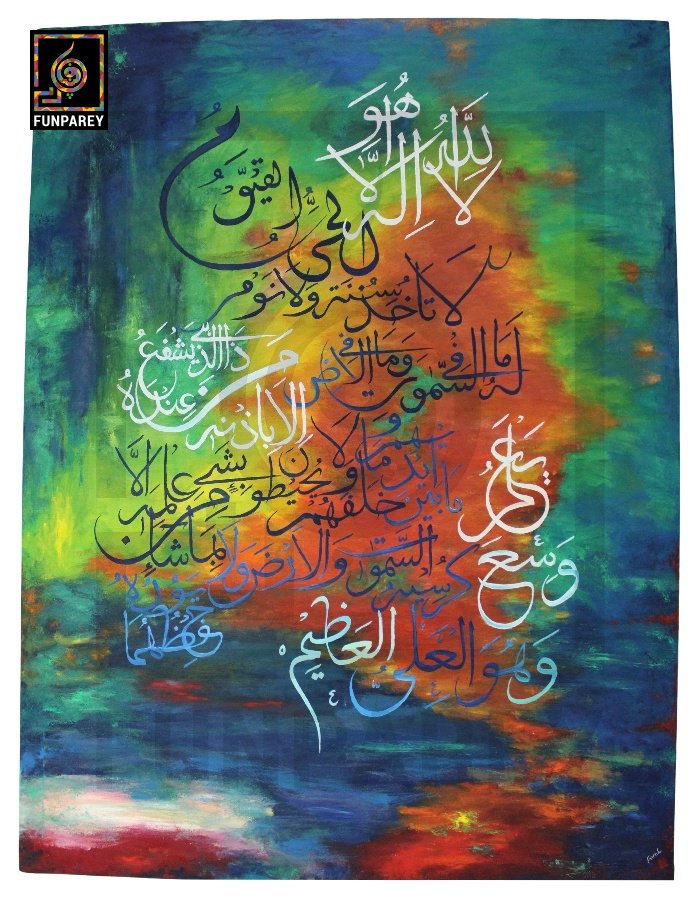 FUNPAREY
الله لا اله الا هو
الحي القيوم
لا تاخذه سنة ولا نوم
له ما في السموت وما في الارض
من ذا الذي يشفع عنده
الا باذنه
يعلم ما بين ايديهم وما خلفهم
ولا يحيطون بشيء من علمه الا
بما شاء
وسع كرسيه السموت والارض ولا يؤده
حفظهما
وهو العلي العظيم